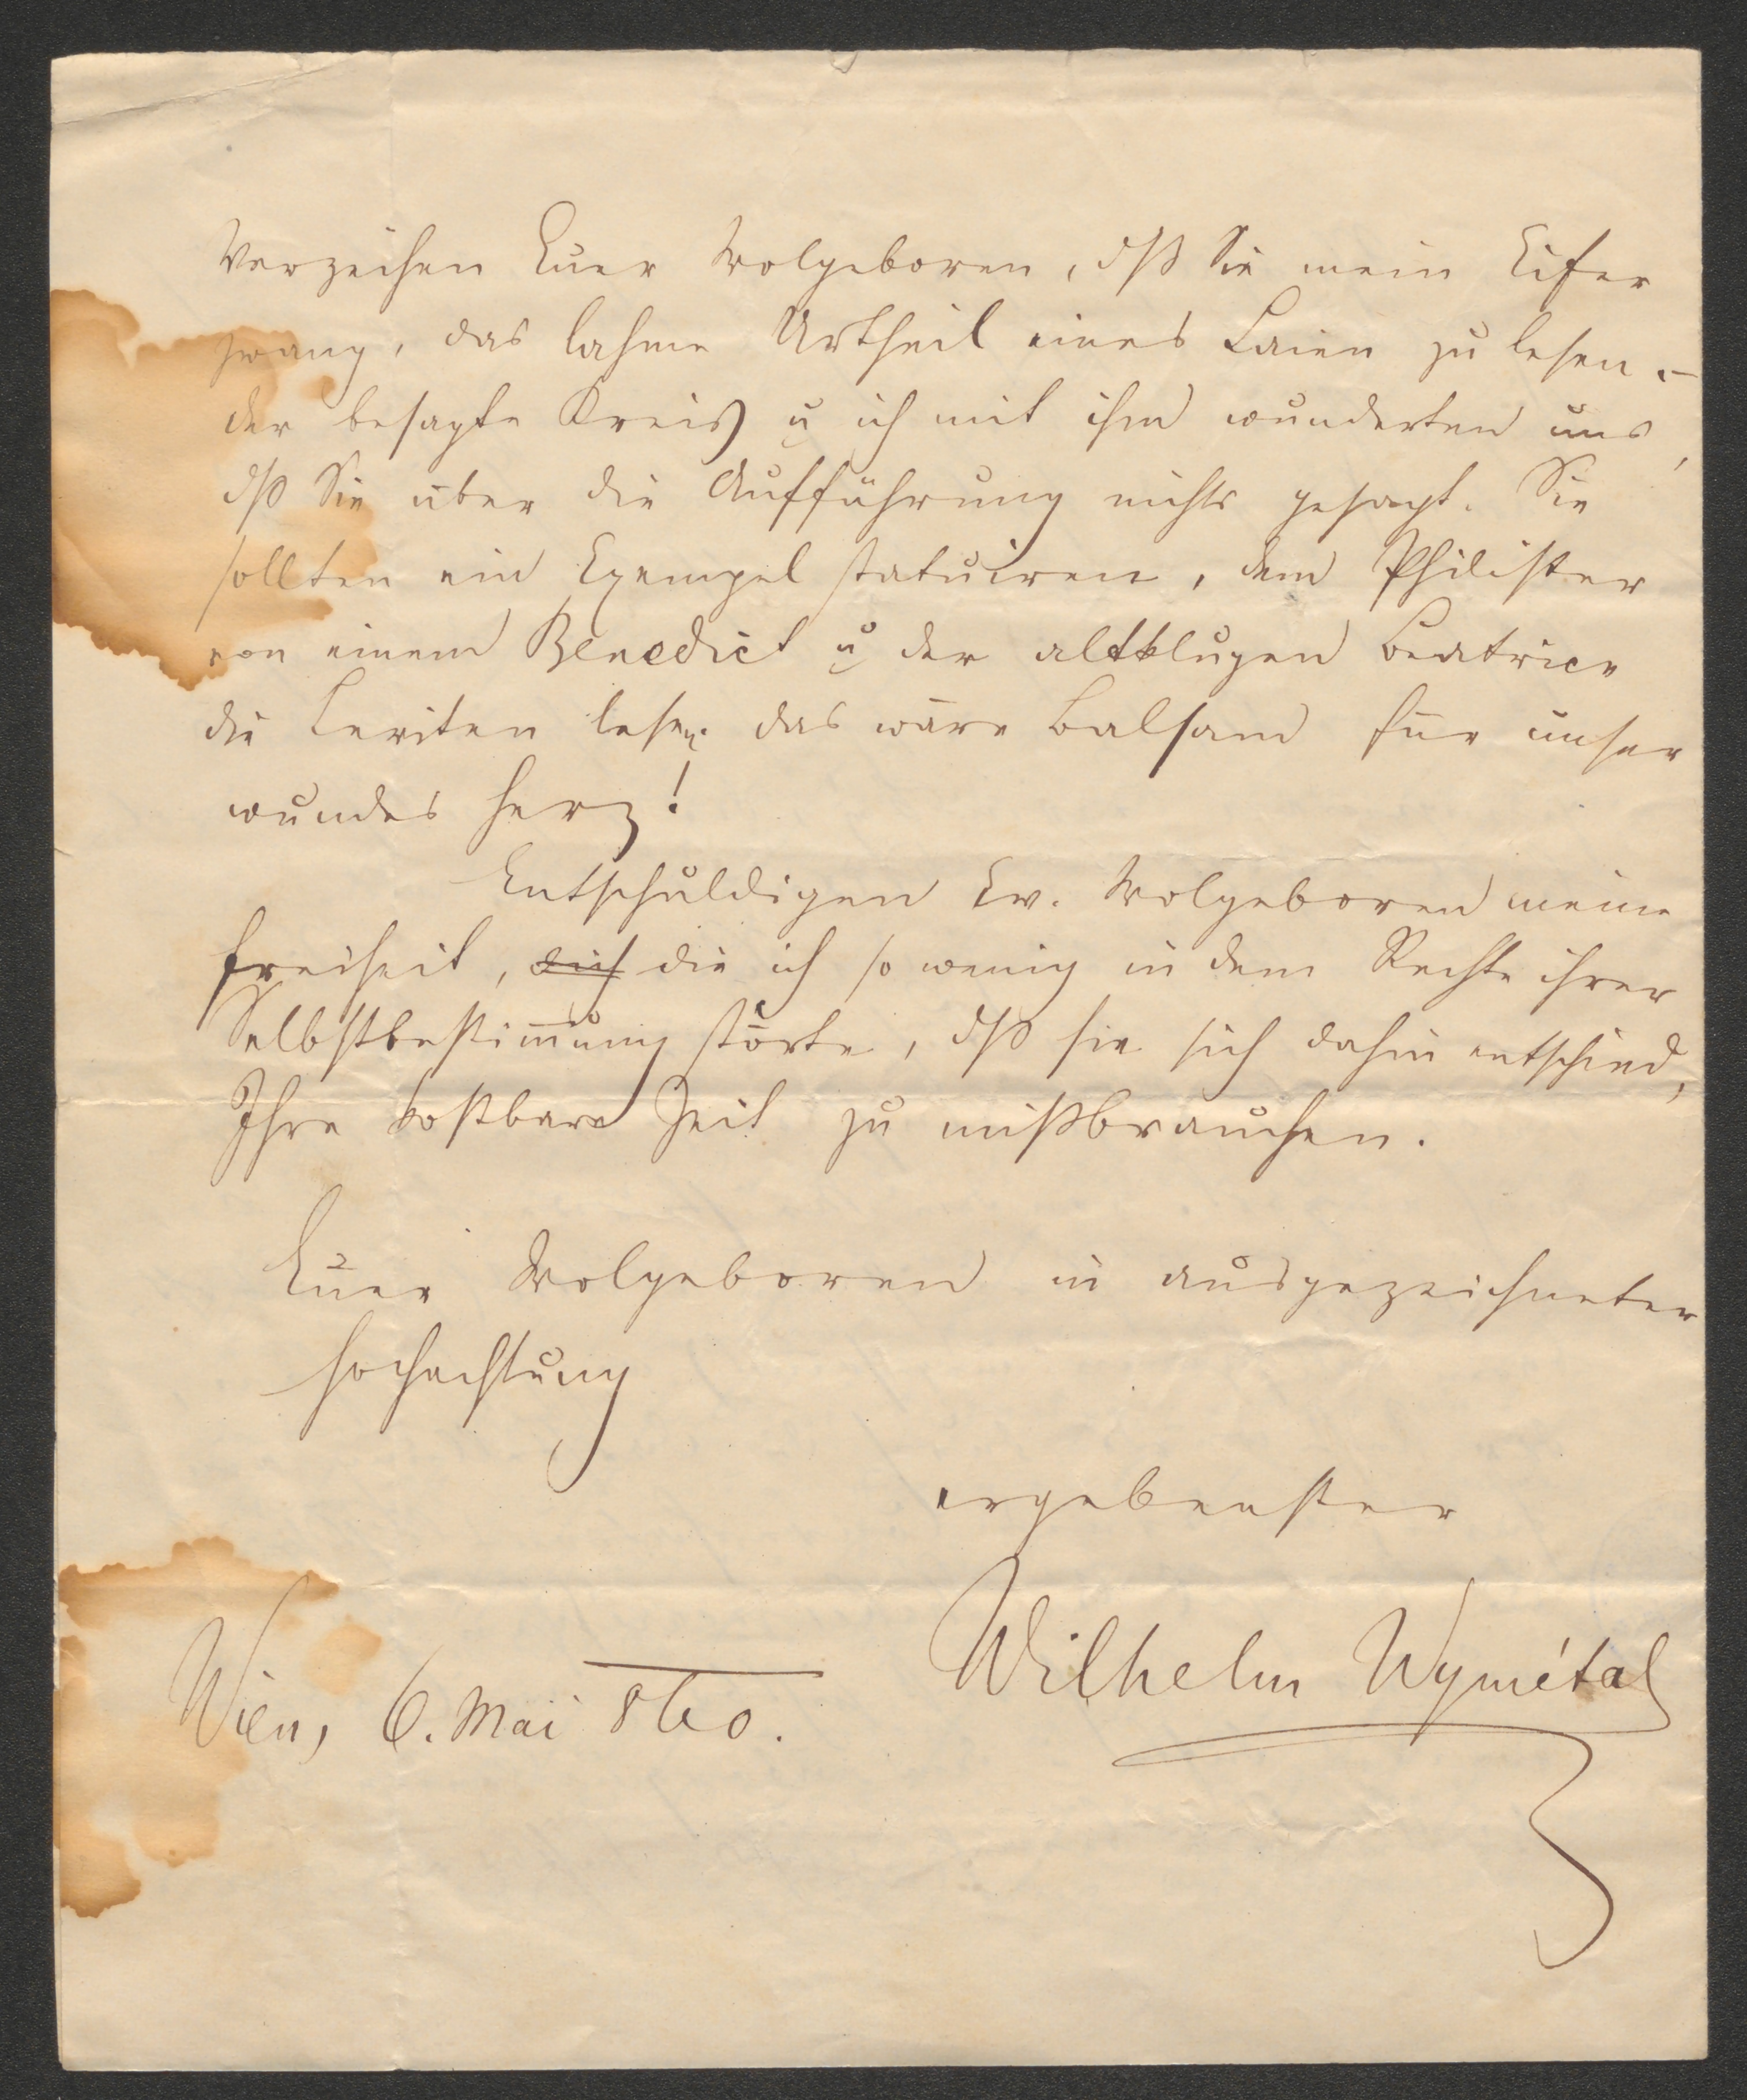 Verzeihen Euer Wolgeboren, dß Sie mein Eifer
zwang, das lahme Urtheil eines Laien zu lesen. –
der besagte Kreis u ich mit ihm wunderten uns,
dß Sie über die Aufführung nichts gesagt. Sie
sollten ein Exempel statuiren, dem Philister
von einem Benedict u der altklugen Beatrice
die Leviten lesen. das wäre Balsam für unser
wundes Herz!
Entschuldigen Ew. Wolgeboren meine
Freiheit, die ich so wenig in dem Rechte ihrer
Selbstbestimmung störte, dß sie sich dahin entschied,
Ihre kostbare Zeit zu mißbrauchen.
Euer Wolgeboren in ausgezeichneter
Hochachtung
ergebenster
Wilhelm Wymétal
Wien, 6. Mai 860.